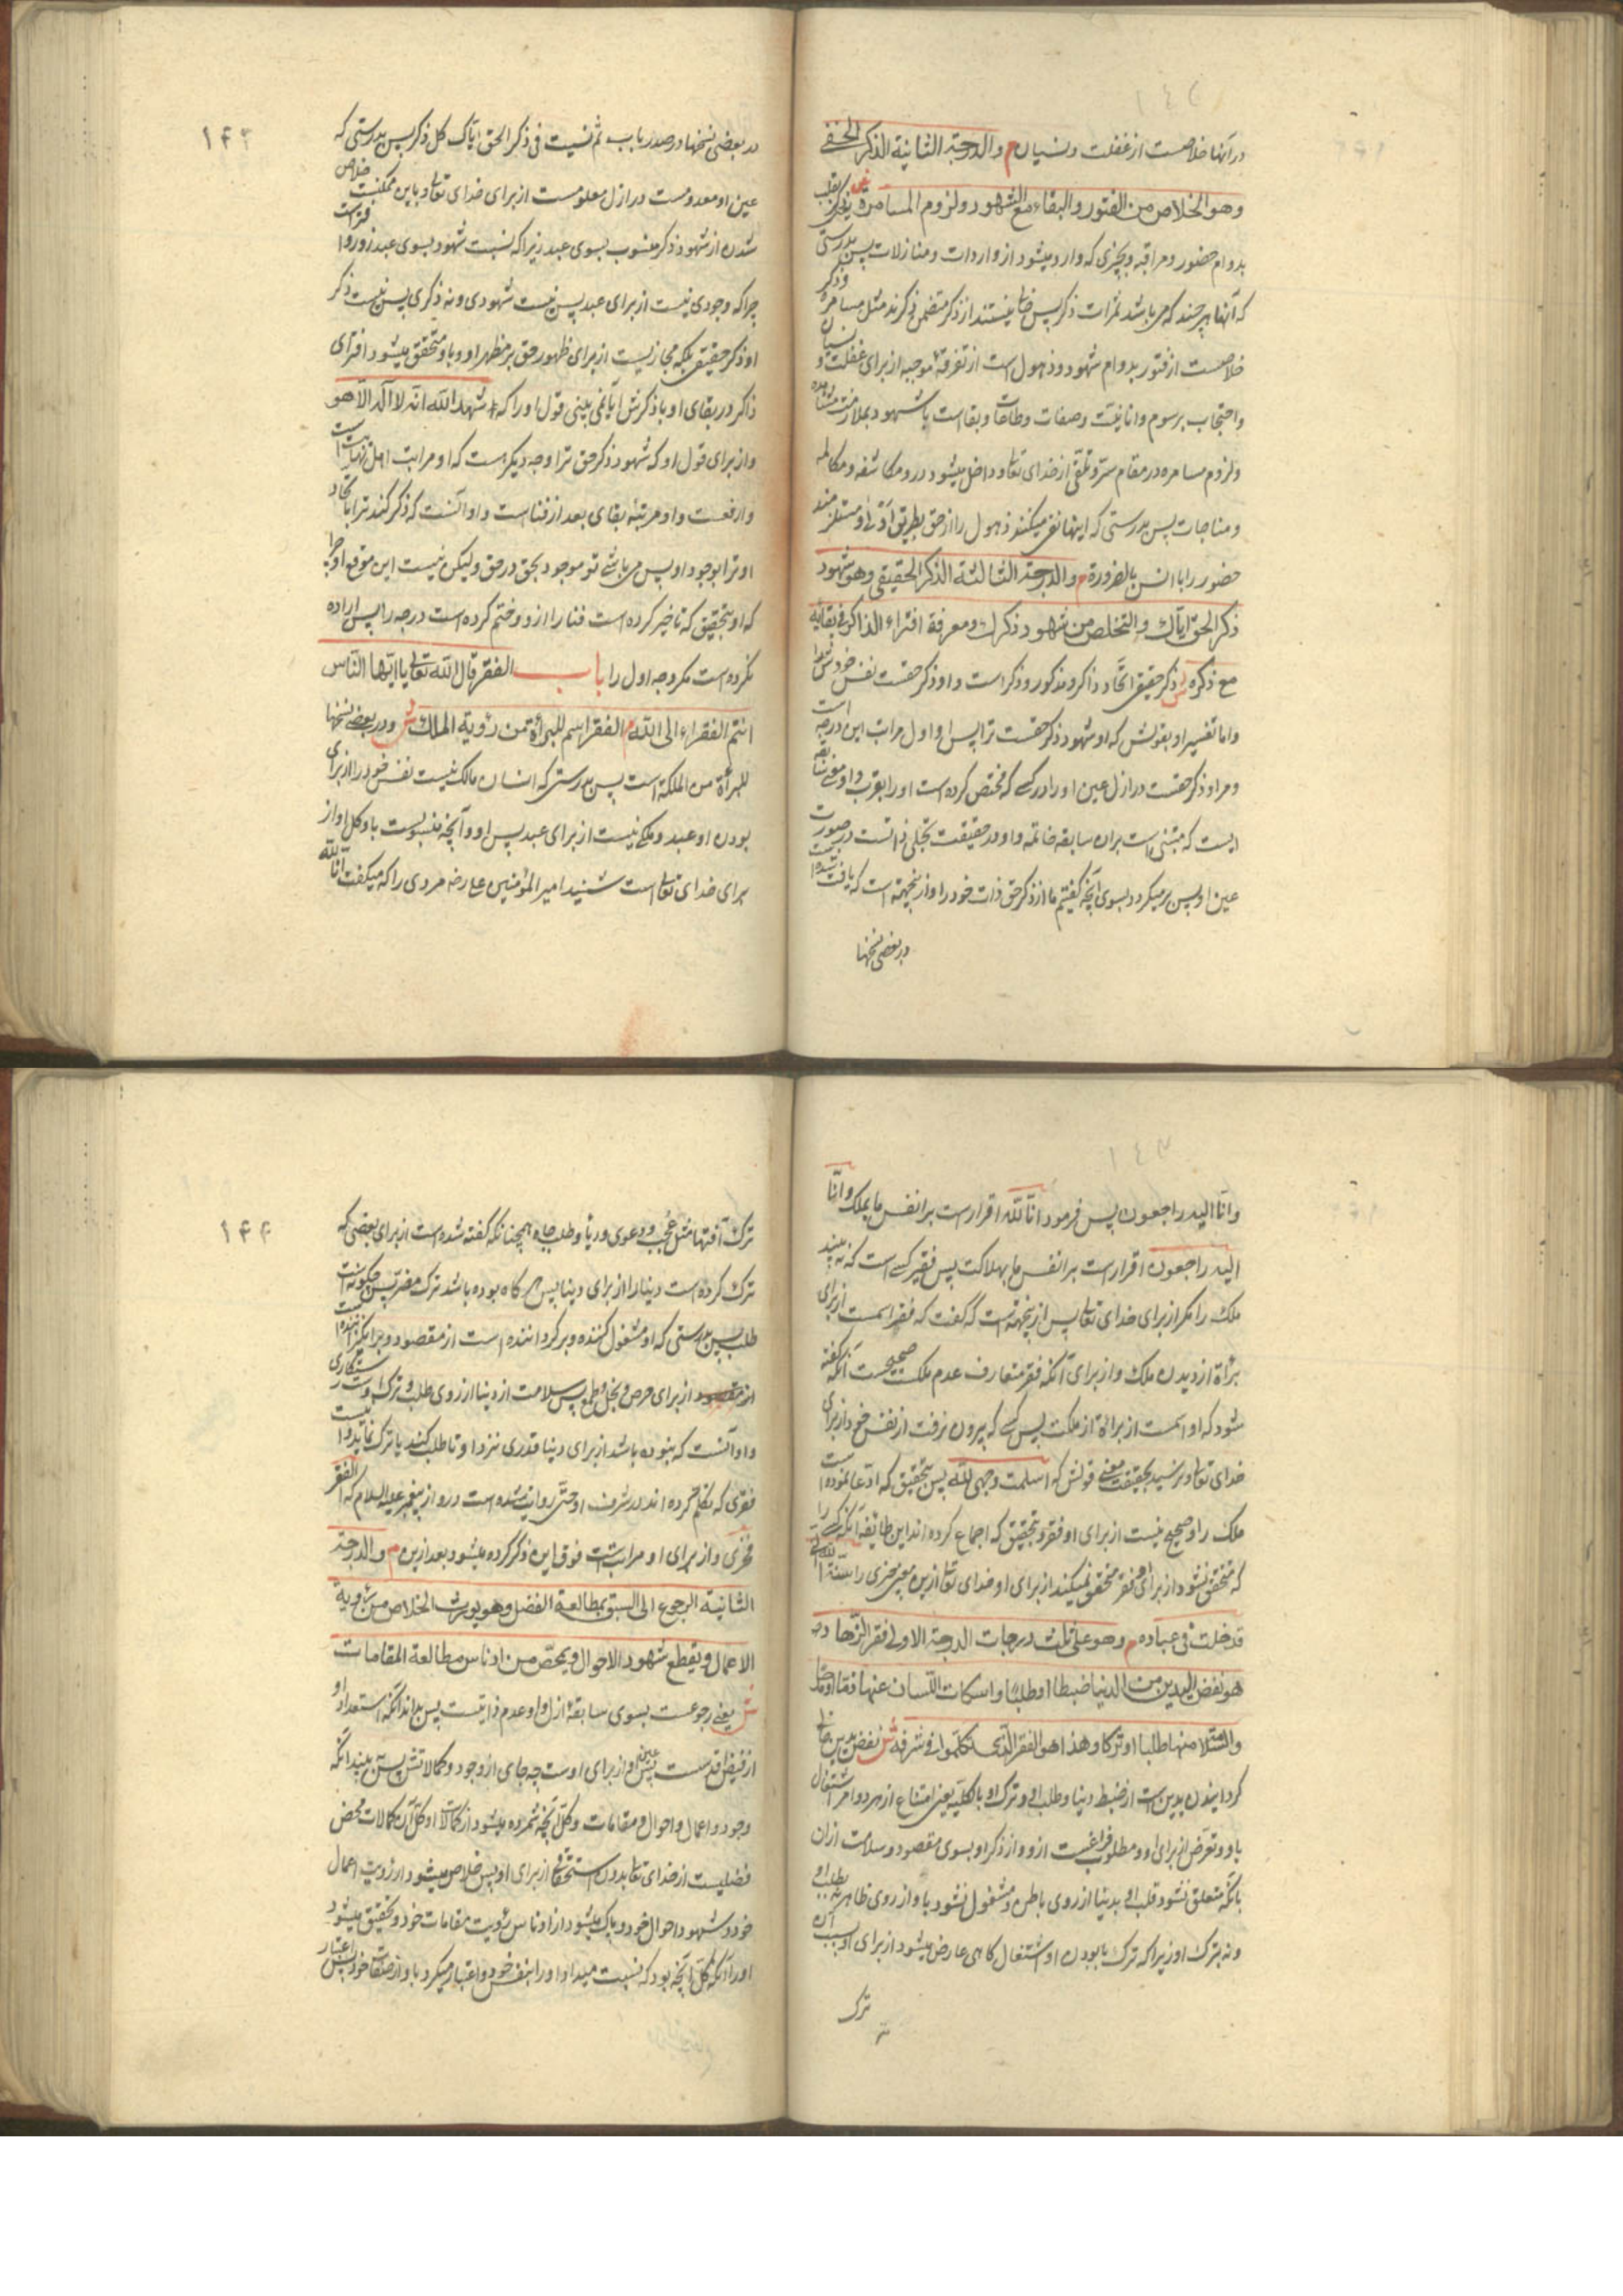 در آنها خلاصست از غفلت و نسیان م والدرجة الثانیة الذکر الخفی
وهو الخلاص من الفتور والبقاء مع الشهود ولزوم المسامرة
بدوام حضور و مراقبه و بچیزی که وارد میشود از واردات و منازلات پس بدرستی
که آنها هر چند که می باشد ثمرات ذکر پس خالی نیستند از ذکر متضمن ذکرند مثل مسامره
خلاصست از فتور بدوام شهود و ذهول است از تفرقه موجبه از برای غفلت و نسیان
و احتجاب برسوم و انانیت و صفات و طاعات و بقا است با شهود بملازمت مشاهده
و لزوم مسامره در مقام سر و تلقی از خدای تعالی و داخل میشود درو مکاشفه و مکالمه
و مناجات پس بدرستی که اینها نفی میکنند ذهول را از حق بطریق اولی و مستلزمند
حضور را با انس بالضرورة م والدرجة الثالثة الذکر الحقیقی وهو شهود
ذکر الحق ایاک والتخلص من شهود ذکرک ومعرفة افتراء الذاکر فی بقائه
مع ذکره ش ذکر حقیقی اتحاد ذاکر و مذکور و ذکر است و او ذکر حقست نفس خودش را
و اما تفسیر او بقولش که او شهود ذکر حقست ترا پس او اول مراتب این درجه است
و مر او ذکر حقست در ازل عین او را در کسی که مختص کرده است او را بقرب و او معنی
ایست که مبتنی است بران سابقه خاتمه و او در حقیقت تجلی ذاتست در صورت
عین او پس بر میگردد بسوی آنچه گفتیم ما از ذکر حق ذات خود را و از ینجهت است که یافت شده است
در بعضی نسخها
۱۴۳
در بعضی نسخها در صدر باب ثم نسیت فی ذکر الحق ایاک کل ذکر پس بدرستی که
عین او معدومست در ازل معلومست از برای خدای تعالی و باین ممکنست خلاص
شدن از شهود ذکر منسوب بسوی عبد زیرا که نسبت شهود بسوی عبد زور و افتراست
چرا که وجودی نیست از برای عبد پس نیست شهودی و نه ذکری پس نیست ذکر
او ذکر حقیقی بلکه مجازیست از برای ظهور حق بر مظهر او و با و متحقق میشود افترای
ذاکر در بقای او با ذکرش آیا نمی بینی قول او را که شهد الله انه لا اله الا هو
و از برای قول او که شهود ذکر حق ترا وجه دیگر است که او مراتب اهل نهایت است
و ارفعست و او مرتبه بقای بعد از فناست و او آنست که ذکر کند ترا باتحاد
او ترا بوجود او پس می باشی تو موجود بحق در حق ولیکن نیست این موقع او چرا
که او بتحقیق که تاخیر کرده است فنا را ازو و ختم کرده است درجه را پس اراده
نکرده است مگر وجه اول را باب الفقر قال الله تعالی یا ایها الناس
انتم الفقراء الی الله م الفقر اسم للبرأة من رؤیة الملک ش و در بعضی نسخها
للبرأة من الملکة است پس بدرستی که انسان مالک نیست نفس خود را از برای
بودن او عبد و ملکی نیست از برای عبد پس او و آنچه منسوبست باو کل او از
برای خدای تعالی است شنید امیر المؤمنین علی رضه مردی را که میگفت انا لله
و انا الیه راجعون پس فرمود انا لله اقرارست بر انفس ما بملک و انا
الیه راجعون اقرارست بر انفس ما بهلاکت پس فقیر کسی است که نه بیند
ملک را مگر از برای خدای تعالی پس از ینجهتست که گفت که فقر اسمست از برای
برأة از دیدن ملک و از برای آنکه فقر متعارف عدم ملک صحیحست آنکه گفته
شود که او اسمست از برأة از ملکت پس کسی که بیرون نرفت از نفس خود از برای
خدای تعالی و نرسید بحقیقت معنی قولش که اسلمت وجهی لله پس بتحقیق که ادعا نموده است
ملک را و صحیح نیست از برای او فقر و بتحقیق که اجماع کرده اند این طائفه آنکه کسی را
که متحقق نشود از برای او فقر متحقق نمیکند از برای او خدای تعالی ازین معنی چیزی را سنة الله التی
قد خلت فی عباده م وهو علی ثلث درجات الدرجة الاولی فقر الزهاد وهو
هو نفض الیدین من الدنیا ضبطا او طلبا واسکات اللسان عنها ذما او مدحا
والسلامة منها طلبا او ترکا وهذا هو الفقر الذی تکلموا فی شرفه ش نفض یدین خالی
گردانیدن یدین است از ضبط دنیا و طلب او و ترک او بالکلیه یعنی امتناع از هر دو امر اشتغال
باو و تعرض از برای او و مطلوب فراغیست ازو و از ذکر او بسوی مقصود و سلامت ازان
بآنکه متعلق نشود قلب او بدنیا از روی باطن و مشغول نشود باو از روی ظاهر نه بطلب او
و نه بترک او زیرا که ترک با بودن او اشتغال کاهی عارض میشود از برای او بسبب آن
ترک
۱۴۴
ترک آفتها مثل عجب و دعوی و ریا و طلب جاه همچنانکه گفته شده است از برای بعضی که
ترک کرده است دنیا را از برای دنیا پس هر کاه بوده باشد ترک مضر پس چگونست
طلب پس بدرستی که او مشغول کننده و بر گرداننده است از مقصود و برانگیزاننده است
از برای حرص و بخل و طمع پس سلامت از دنیا از روی طلب و ترک او رستگاری
و او آنست که بنوده باشد از برای دنیا قدری نزد او تا طلب کند یا ترک نماید و اینست
فقری که تکلم کرده اند در شرف او حتی روایت شده است درو از پیغمبر علیه السلام که الفقر
فخری و از برای او مراتبست فوق این ذکر کرده میشود بعد ازین م والدرجة
الثانیة الرجوع الی السبق بمطالعة الفضل وهو یورث الخلاص من رؤیة
الاعمال ویقطع شهود الاحوال ویمحص من ادناس مطالعة المقامات
ش یعنی رجوعست بسوی سابقه ازل و او عدم ذاتیست پس بداند آنکه استعداد او
از فیض اقدست پس عین او از برای اوست چه جای از وجود و کمالاتش پس به بیند آنکه
وجود و اعمال و احوال و مقامات و کل آنچه شمرده میشود از کمالات او کل آن کمالات محض
فضلیست از خدای تعالی بدون استحقاق از برای او پس خلاص میشود از رؤیت اعمال
خود و شهود احوال خود و پاک میشود از ادناس رؤیت مقامات خود و تحقیق میشود
او را آنکه کل آنچه بود که نسبت میداد او را بنفس خود و اعتبار میکرد باو از صفتها خود پس اعتبار